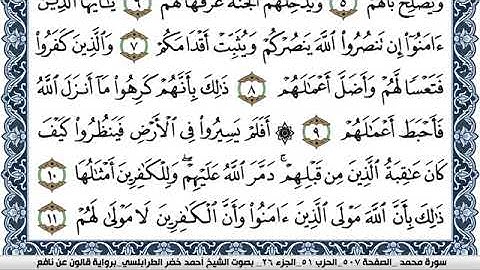 وَيُصْلِحُ بَالَهُمْ ٥ وَيُدْخِلُهُمُ الْجَنَّةَ عَرَّفَهَا لَهُمْ ٦ يَٰأَيُّهَا الَّذِينَ
ءَامَنُوا إِن تَنصُرُوا اللَّهَ يَنصُرْكُمْ وَيُثَبِّتْ أَقْدَامَكُمْ ٧ وَالَّذِينَ كَفَرُوا
فَتَعْسًا لَّهُمْ وَأَضَلَّ أَعْمَٰلَهُمْ ٨ ذَٰلِكَ بِأَنَّهُمْ كَرِهُوا مَا أَنزَلَ اللَّهُ
فَأَحْبَطَ أَعْمَٰلَهُمْ ٩ ۞ أَفَلَمْ يَسِيرُوا فِي الْأَرْضِ فَيَنظُرُوا كَيْفَ
كَانَ عَٰقِبَةُ الَّذِينَ مِن قَبْلِهِمْ دَمَّرَ اللَّهُ عَلَيْهِمْ وَلِلْكَٰفِرِينَ أَمْثَٰلُهَا ١٠
ذَٰلِكَ بِأَنَّ اللَّهَ مَوْلَى الَّذِينَ ءَامَنُوا وَأَنَّ الْكَٰفِرِينَ لَا مَوْلَىٰ لَهُمْ ١١
سورة محمد _الصفحة ٥٠٧_الحزب ٥١_الجزء ٢٦_ بصوت الشيخ أحمد خضر الطرابلسي_برواية قالون عن نافع